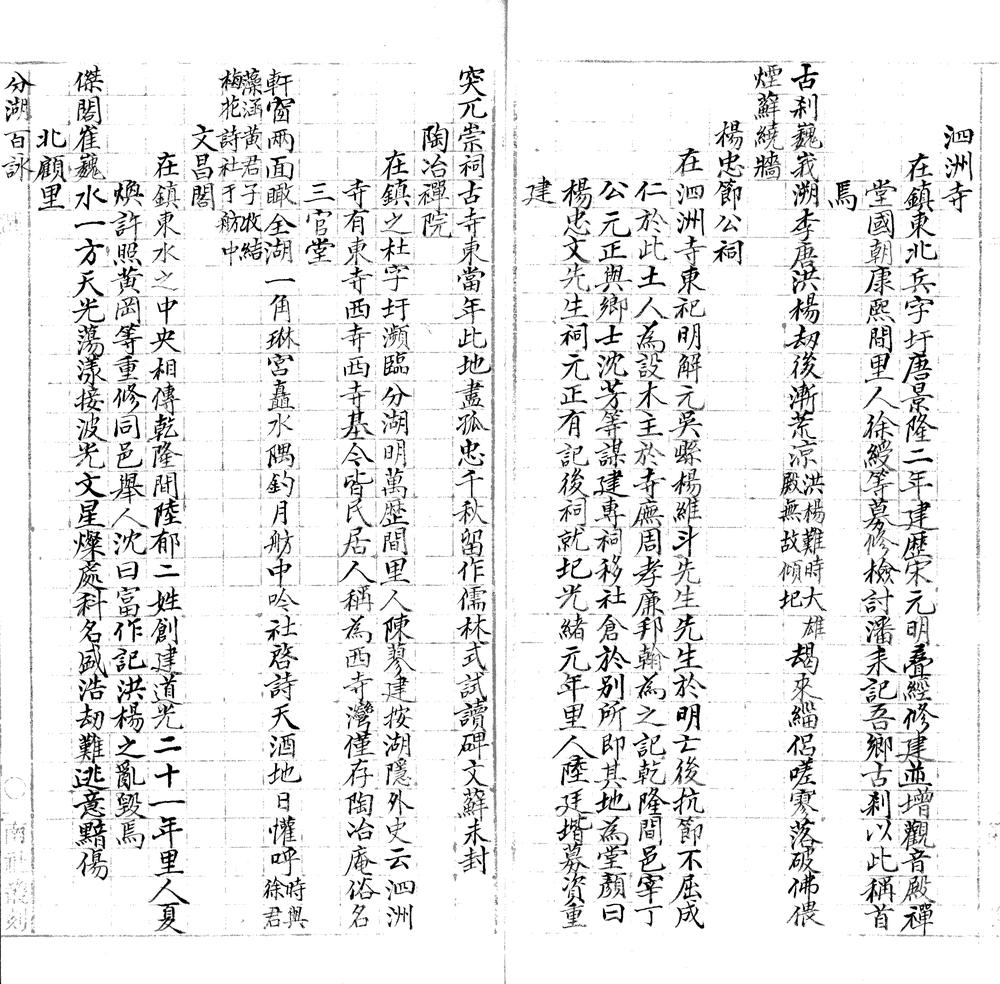 泗洲寺
在鎮東北兵字圩唐景隆二年建歷宋元明疊經修建並增觀音殿禪
堂國朝康熙間里人徐綬等募修檢討潘耒記吾鄉古刹以此稱首
焉
古刹巍峩溯李唐洪楊劫後漸荒涼洪楊難時大雄殿無故傾圮朅來緇侶嗟寥落破佛偎
煙蘚繞牆
楊忠節公祠
在泗洲寺東祀明解元吳縣楊維斗先生先生於明亡後抗節不屈成
仁於此土人為設木主於寺廡周孝廉邦翰為之記乾隆間邑宰丁
公元正與鄉士沈芳等謀建專祠移社倉於別所即其地為堂顏曰
楊忠文先生祠元正有記後祠就圮光緒元年里人陸廷堦募資重
建
突兀崇祠古寺東當年此地盡孤忠千秋留作儒林式試讀碑文蘚未封
陶冶禪院
在鎮之杜字圩瀕臨分湖明萬歷間里人陳蓼建按湖隱外史云泗洲
寺有東寺西寺西寺基今皆民居人稱為西寺灣僅存陶冶庵俗名
三官堂
軒窗兩面瞰全湖一角琳宮矗水隅釣月舫中吟社啓詩天酒地日懽呼時與徐君
藻涵黃君子牧結
梅花詩社于舫中
文昌閣
在鎮東水之中央相傳乾隆間陸郁二姓創建道光二十一年里人夏
煥許照黃岡等重修同邑舉人沈曰富作記洪楊之亂毀焉
傑閣崔巍水一方天光蕩漾接波光文星燦處科名盛浩劫難逃意黯傷
北顧里
分湖百詠
南社叢刻